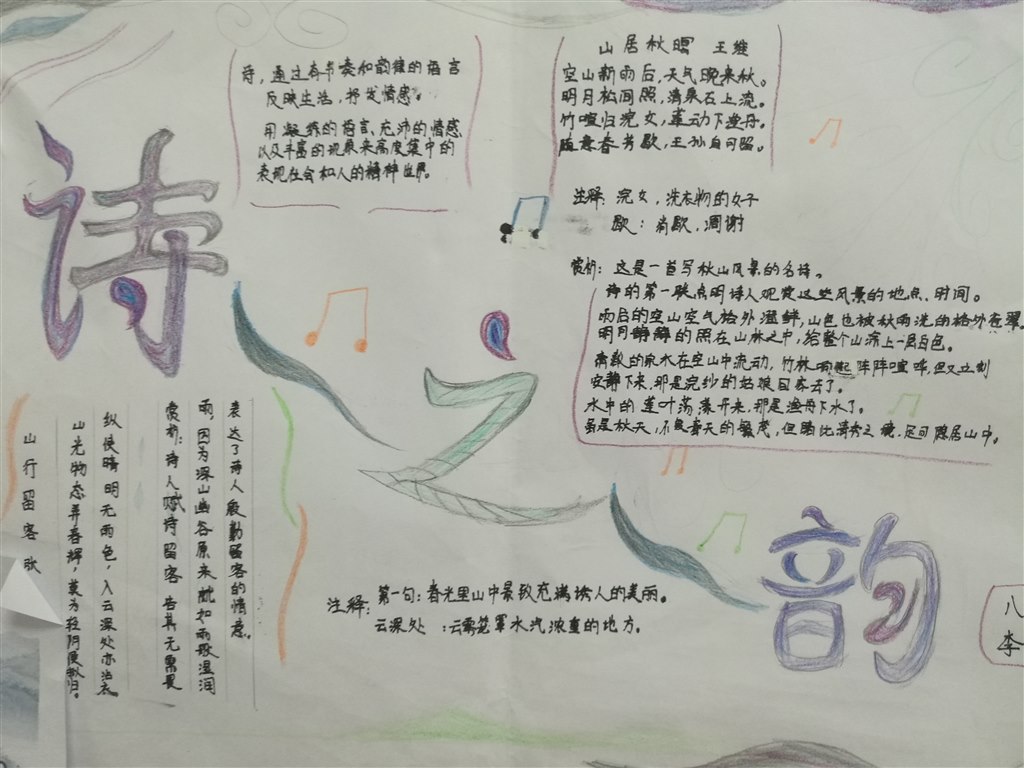 诗之韵
诗，通过有节奏和韵律的语言
反映生活，抒发情感。
用凝练的语言、充沛的情感
以及丰富的现象来高度集中的
表现社会和人的精神世界。
山居秋暝 王维
空山新雨后，天气晚来秋。
明月松间照，清泉石上流。
竹喧归浣女，莲动下渔舟。
随意春芳歇，王孙自可留。
注释：浣女，洗衣物的女子
歇：消歇，凋谢
赏析：这是一首写秋山风景的名诗。
诗的第一联点明诗人观赏这些风景的地点、时间。
雨后的空山空气格外湿鲜，山色也被秋雨洗的格外苍翠
明月静静的照在山林之中，给整个山添上一层白色。
清澈的泉水在空山中流动，竹林响起阵阵喧哗，但又立刻
安静下来，那是浣纱的姑娘回家去了。
水中的莲叶荡漾开来，那是渔舟下水了。
虽是秋天，不是春天的繁茂，但确比清秀之境，足可隐居山中。
山行留客
山光物态弄春辉，莫为轻阴便拟归。
纵使晴明无雨色，入云深处亦沾衣
赏析：诗人赋诗留客 告其无需畏
雨，因为深山幽谷原来就如雨般湿润
表达了诗人殷勤留客的情意。
注释：第一句：春光里山中景致充满诱人的美丽。
云深处：云雾笼罩水汽浓重的地方。
八
李